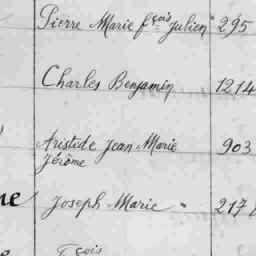 Pierre Marie fçois Julien 295
Charles Benjamin 1214
Aristide Jean Marie 903
Jérôme
Joseph Marie 217
fçois